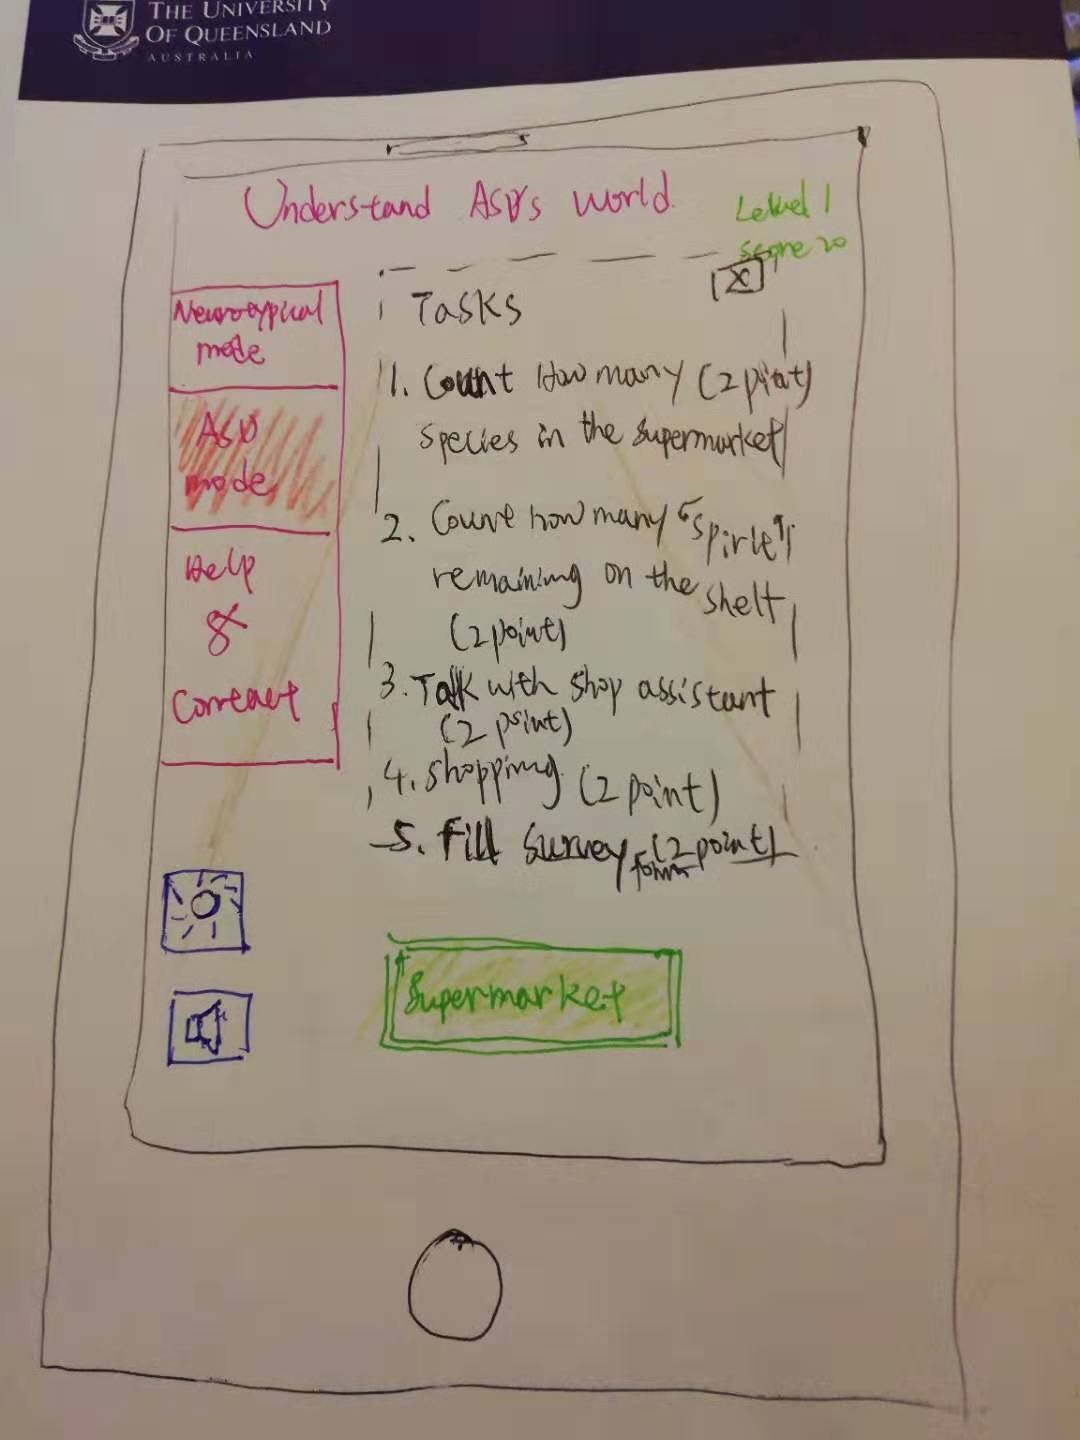 THE UNIVERSITY
OF QUEENSLAND
AUSTRALIA
Understand ASD's world
Level 1
score 20
Neurotypical
mode
ASD
mode
Help
&
Contact
Tasks
X
1. Count How many (2 point)
species in the supermarket
2. Count how many "Spirte"
remaining on the shelt
(2 point)
3. Talk with shop assistant
(2 point)
4. Shopping (2 point)
5. Fill survey form (2 point)
Supermarket